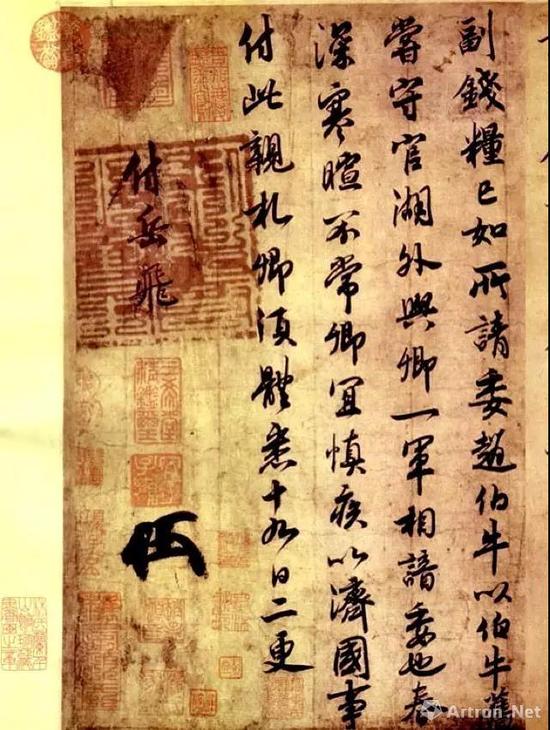 副錢糧已如所請委趙伯牛以伯牛舊
嘗守官湖外與卿一軍相諳委也春
深寒暄不常卿宜慎疾以濟國事
付此親札卿須體悉十九日二更
付岳飛
三希堂精鑑璽
宜子孫
Artron.Net